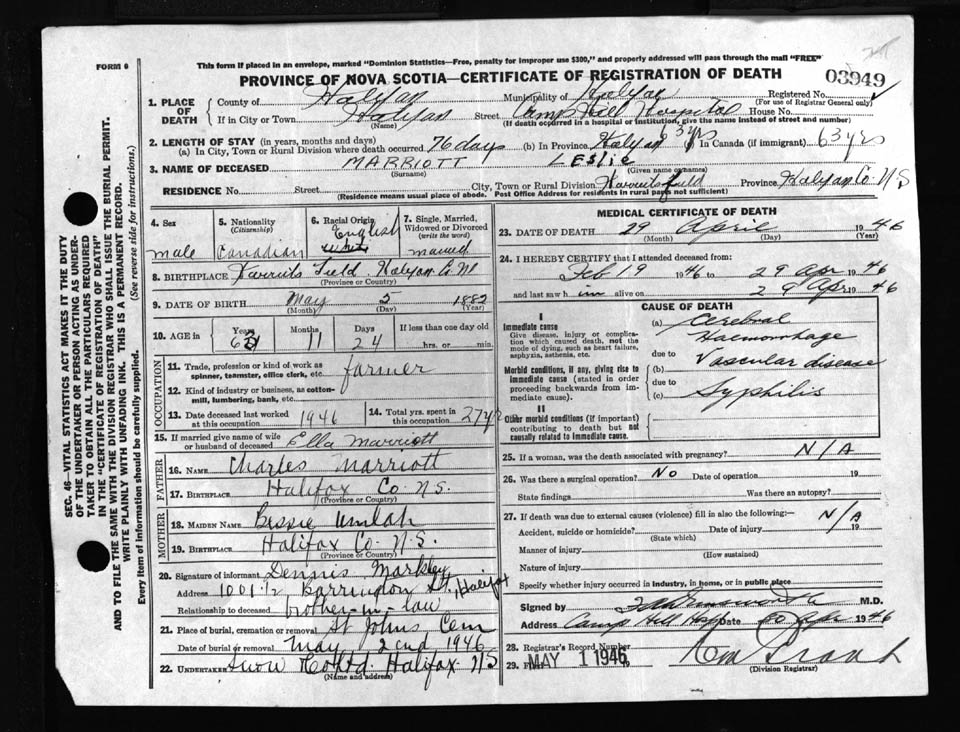 This form if placed in an envelope, marked "Dominion Statistics—Free, penalty for improper use $300," and properly addressed will pass through the mail "FREE"
FORM 6
PROVINCE OF NOVA SCOTIA—CERTIFICATE OF REGISTRATION OF DEATH
03949
1. PLACE OF DEATH
County of Halifax Municipality of Halifax Registered No.
(For use of Registrar General only)
If in City or Town, Halifax Street Camp Hill Hospital House No.
(Name) (If death occurred in a hospital or institution, give the name instead of street and number)
2. LENGTH OF STAY (in years, months and days)
(a) In City, Town or Rural Division where death occurred 76 days (b) In Province Halifax 63 yrs In Canada (if immigrant) 63 yrs
3. NAME OF DECEASED MARRIOTT LESLIE
(Surname) (Given name or names)
RESIDENCE No. Street City, Town or Rural Division Province Halifax Co. N S
(Residence means usual place of abode. Post Office Address for residents in rural parts not sufficient)
4. Sex
male
5. Nationality
(Citizenship)
Canadian
6. Racial Origin
English
7. Single, Married, Widowed or Divorced
(write the word)
married
8. BIRTHPLACE Field, Halifax Co. NS
(Province or Country)
9. DATE OF BIRTH May 5 1882
(Month) (Day) (Year)
10. AGE in
Years Months Days If less than one day old
63 11 24 hrs. or min.
OCCUPATION
11. Trade, profession or kind of work as spinner, teamster, office clerk, etc. farmer
12. Kind of industry or business, as cotton-mill, lumbering, bank, etc.
13. Date deceased last worked at this occupation 1946
14. Total yrs. spent in this occupation 27 yrs
15. If married give name of wife or husband of deceased Ella Marriott
FATHER
16. NAME Charles Marriott
17. BIRTHPLACE Halifax Co. N.S.
(Province or Country)
MOTHER
18. MAIDEN NAME Bessie Umlah
19. BIRTHPLACE Halifax Co. N.S.
(Province or Country)
20. Signature of informant Dennis Markley
Address 1001 1/2 Barrington St., Halifax
Relationship to deceased brother-in-law
21. Place of burial, cremation or removal St Johns Cem
Date of burial or removal May 2nd 1946
22. UNDERTAKER Snow & Co Ltd. Halifax NS
(Name and address)
MEDICAL CERTIFICATE OF DEATH
23. DATE OF DEATH 29 April 1946
(Month) (Day) (Year)
24. I HEREBY CERTIFY that I attended deceased from:
Feb 19 1946 to 29 Apr 1946
and last saw him alive on 29 Apr 1946
CAUSE OF DEATH
I
Immediate cause
Give disease, injury or complication which caused death, not the mode of dying, such as heart failure, asphyxia, asthenia, etc.
Morbid conditions, if any, giving rise to immediate cause (stated in order proceeding backwards from immediate cause).
II
Other morbid conditions (if important) contributing to death but not causally related to immediate cause.
(a) Cerebral Haemorrhage
due to
(b) Vascular disease
due to
(c) Syphilis
25. If a woman, was the death associated with pregnancy? N/A
26. Was there a surgical operation? No Date of operation 19
State findings Was there an autopsy?
27. If death was due to external causes (violence) fill in also the following:—
Accident, suicide or homicide? Date of injury N/A 19
(State which)
Manner of injury
(How sustained)
Nature of injury
Specify whether injury occurred in industry, in home, or in public place
Signed by M.D.
Address Camp Hill Hosp Date 30 Apr 1946
28. Registrar's Record Number
29. Filed MAY 1 1946
(Division Registrar)
SEC. 46—VITAL STATISTICS ACT MAKES IT THE DUTY OF THE UNDERTAKER OR PERSON ACTING AS UNDERTAKER TO OBTAIN ALL THE PARTICULARS REQUIRED IN THE "CERTIFICATE OF REGISTRATION OF DEATH" AND TO FILE THE SAME WITH THE DIVISION REGISTRAR WHO SHALL ISSUE THE BURIAL PERMIT.
WRITE PLAINLY WITH UNFADING INK. THIS IS A PERMANENT RECORD.
Every item of information should be carefully supplied. (See reverse side for instructions.)